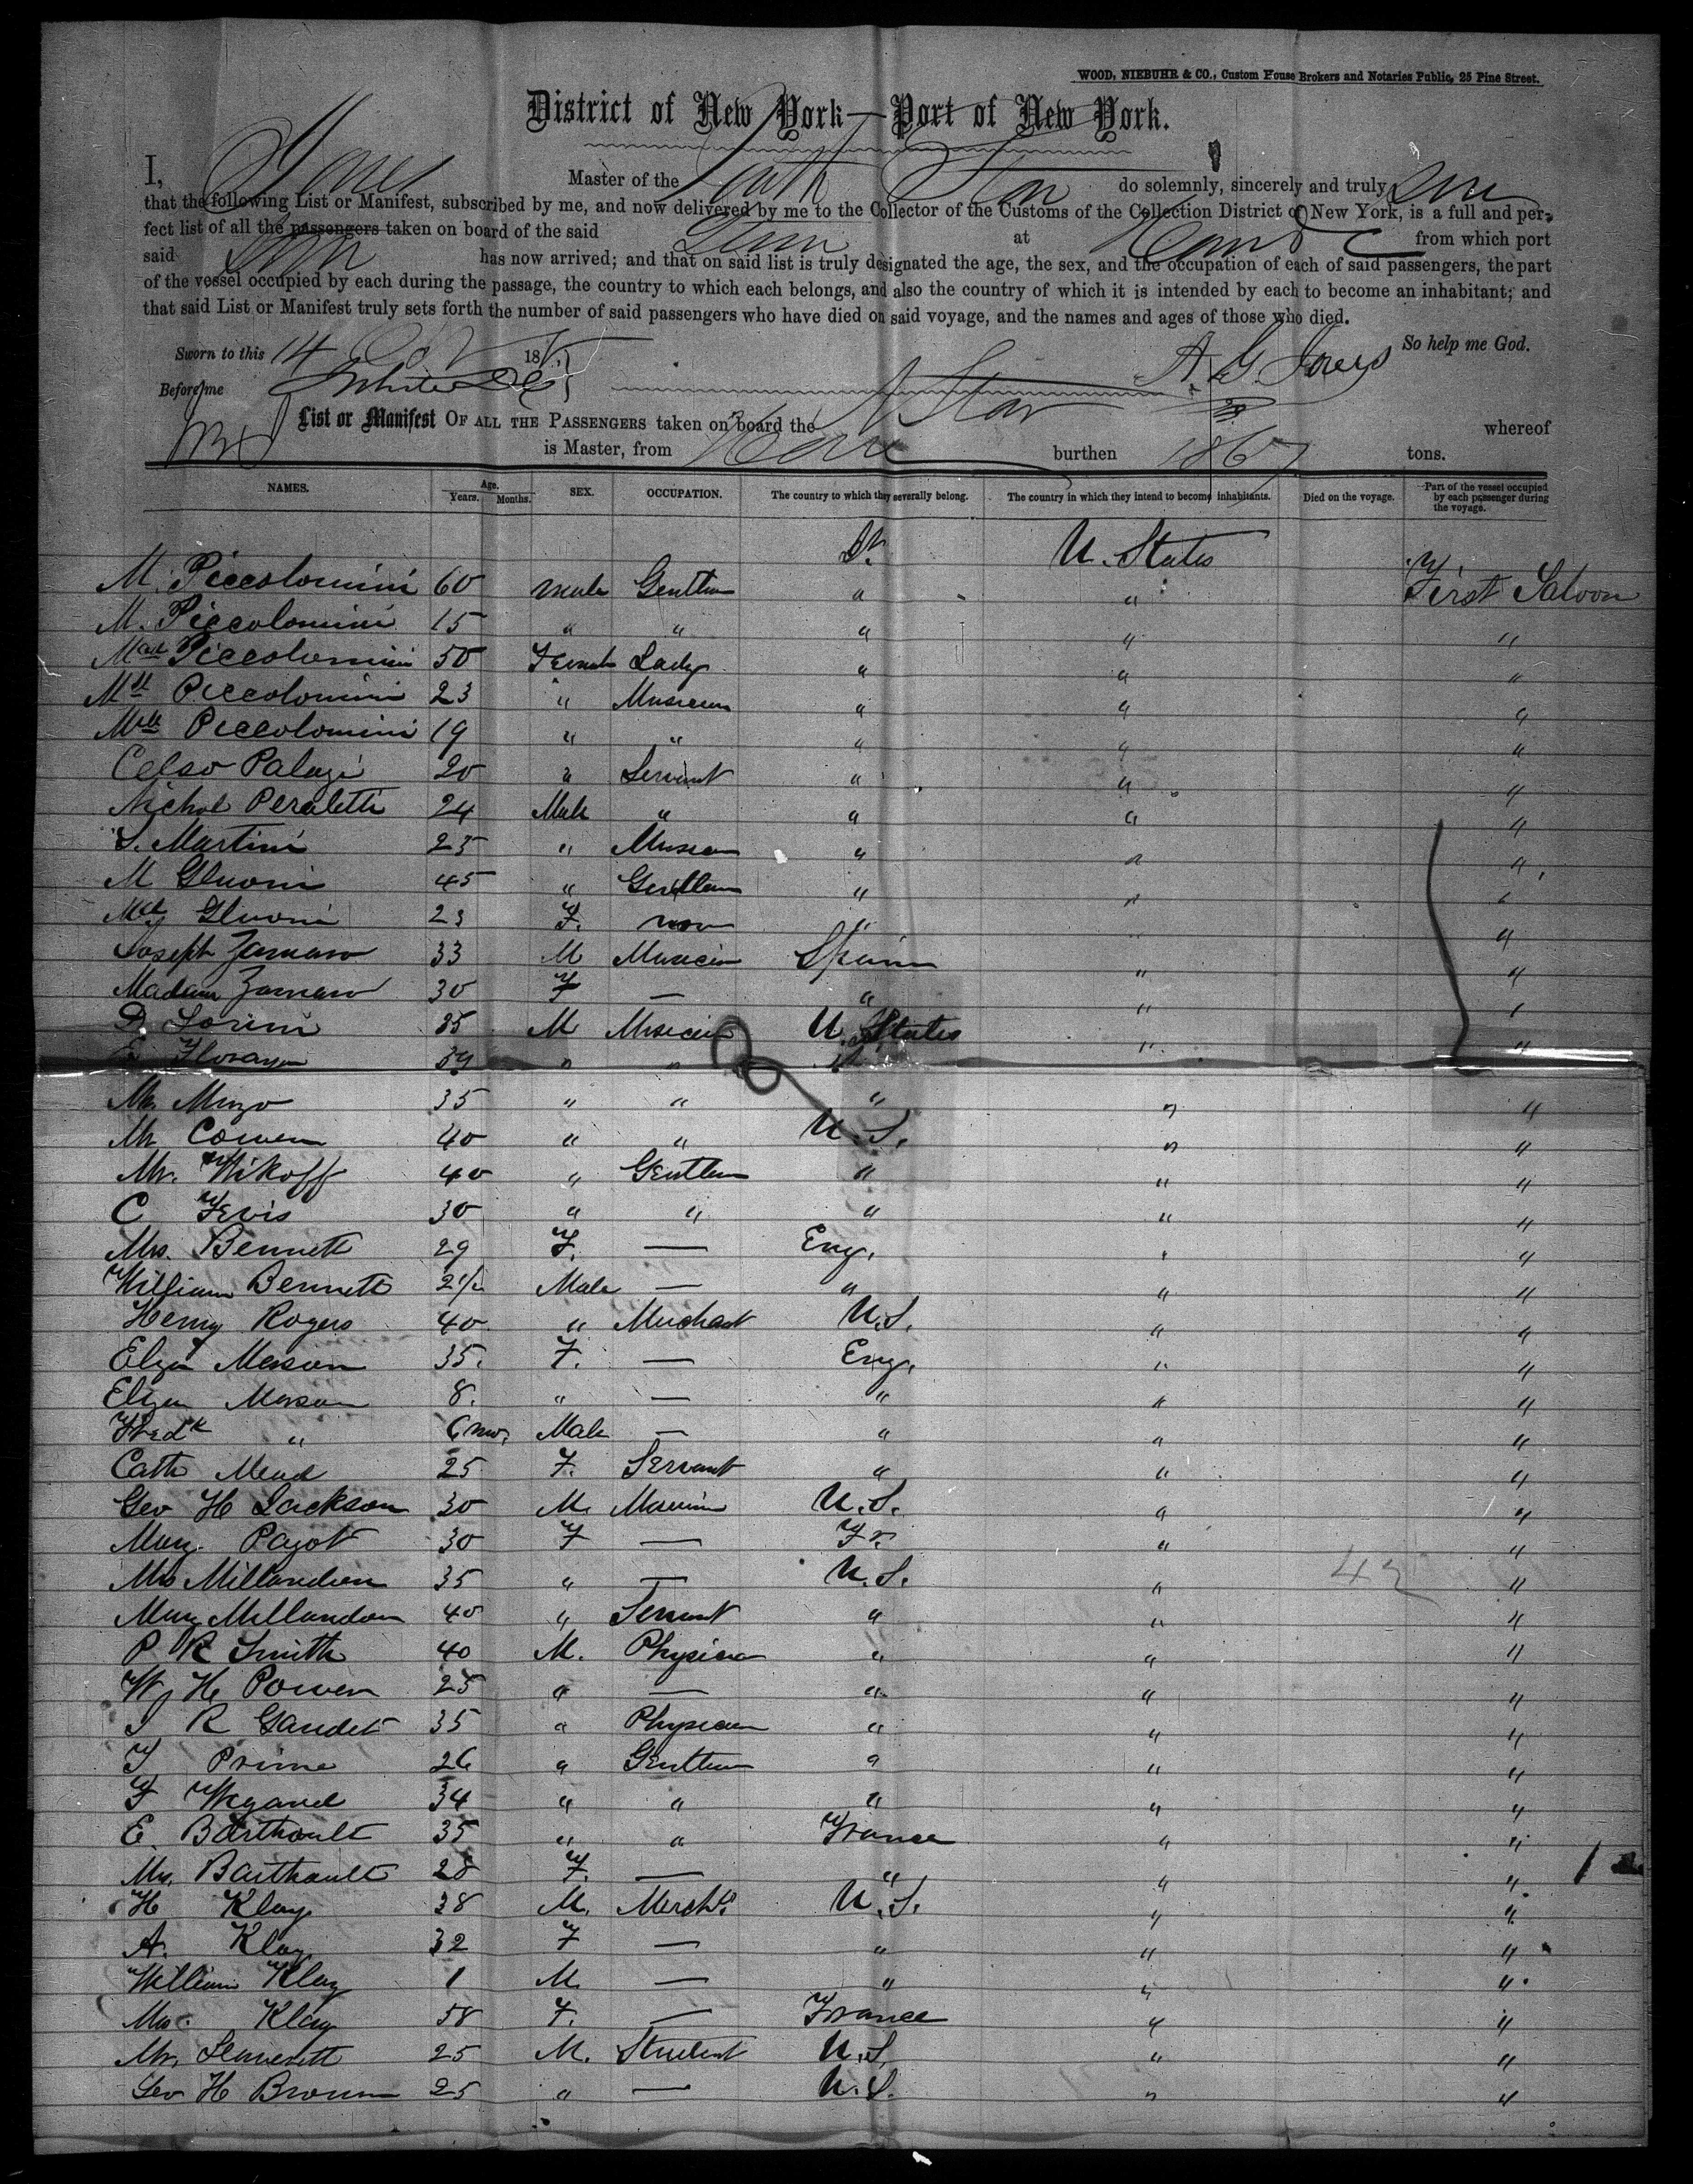 WOOD, NIEBUHR & CO., Custom House Brokers and Notaries Public, 25 Pine Street.
District of New York—Port of New York.
I, Jones Master of the North Star do solemnly, sincerely and truly
that the following List or Manifest, subscribed by me, and now delivered by me to the Collector of the Customs of the Collection District of New York, is a full and per-
fect list of all the passengers taken on board of the said at from which port
said has now arrived; and that on said list is truly designated the age, the sex, and the occupation of each of said passengers, the part
of the vessel occupied by each during the passage, the country to which each belongs, and also the country of which it is intended by each to become an inhabitant; and
that said List or Manifest truly sets forth the number of said passengers who have died on said voyage, and the names and ages of those who died.
So help me God.
Sworn to this 14 185 A. G. Jones
Before me
List or Manifest OF ALL THE PASSENGERS taken on board the N Star whereof
is Master, from Havre burthen 1867 tons.
NAMES. Age. Years. Months. SEX. OCCUPATION. The country to which they severally belong. The country in which they intend to become inhabitants. Died on the voyage. Part of the vessel occupied by each passenger during the voyage.
It. U. States
M. Piccolomini 60 male Gentlm " " First Saloon
M. Piccolomini 15 " " " " "
Mad Piccolomini 50 Female Lady " " "
Mll Piccolomini 23 " Musician " " "
Mlle Piccolomini 19 " " " " "
Celso Palazi 20 " Servant " " "
Nichol Peraletti 24 Male " " " "
S. Martini 25 " Musician " " "
M Gluoni 45 " Gentlem " " "
Mll Gluoni 23 F. non " " "
Joseph Zamaro 33 M Musician Spain " "
Madam Zamaro 30 F — " " "
D Lorini 35 M Musician U. States " "
E 39 " " " "
Mr. Muzo 35 " " " " "
Mr Cowen 40 " " U.S. " "
Mr. Wikoff 40 " Gentlem " " "
C Fevis 30 " " " " "
Mrs. Bennett 29 F. — Eng. " "
William Bennett 2 1/2 Male — " " "
Henry Rogers 40 " Merchant U.S. " "
Eliza Mason 35. F. — Eng. " "
Eliza Mason 8. " — " " "
Fredk " 6 mo. Male — " " "
Cath Mead 25 F. Servant " " "
Geo H Jackson 30 M. U.S. " "
Mary Payot 30 F — Fr. " "
Mrs Millandon 35 " — U.S. " 42 "
Mary Millandon 40 " Servant " " "
P R Smith 40 M. Physician " " "
W H Power 25 " — " " "
J R Gaudet 35 " Physician " " "
F Prime 26 " Gentlem " " "
F Wegand 34 " " " " "
E. Barthault 35 " " France " "
Mrs. Barthault 28 F. — " " "
H Klay 38 M. Mercht. U.S. " "
A. Klay 32 F — " " "
William Klay 1 M. — " " "
Mrs. Klay 58 F. — France " "
Mr. 25 M. Student U.S. " "
Geo H Brown 25 " — U.S. " "